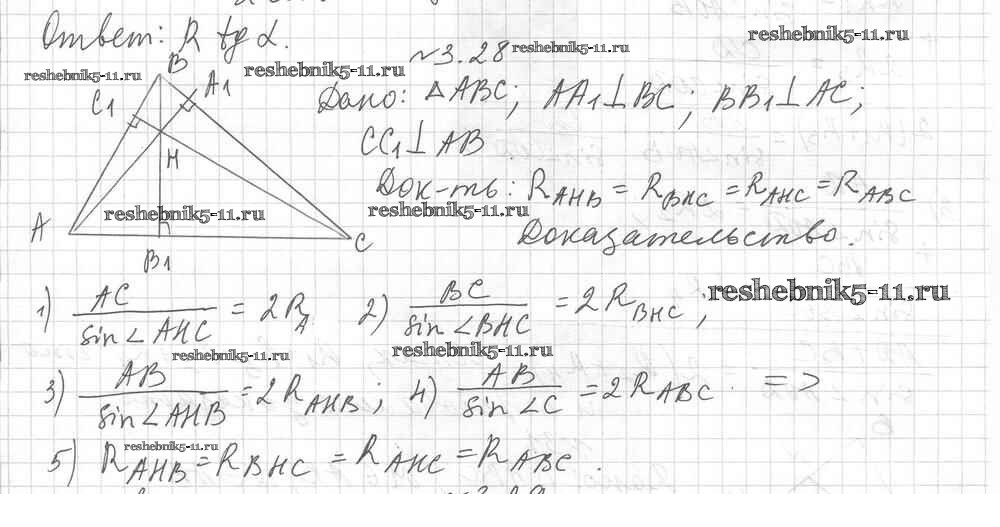 Ответ: R tg α.
№3.28
reshebnik5-11.ru
reshebnik5-11.ru
reshebnik5-11.ru
reshebnik5-11.ru
B
A1
C1
H
A
B1
C
Дано: △ABC; AA1⊥BC; BB1⊥AC;
CC1⊥AB
Док-ть: R_AHB = R_BHC = R_AHC = R_ABC
reshebnik5-11.ru
reshebnik5-11.ru
Доказательство.
1) AC / sin∠AHC = 2R_A 2) BC / sin∠BHC = 2R_BHC;
reshebnik5-11.ru
reshebnik5-11.ru
reshebnik5-11.ru
3) AB / sin∠AHB = 2R_AHB; 4) AB / sin∠C = 2R_ABC. =>
reshebnik5-11.ru
5) R_AHB = R_BHC = R_AHC = R_ABC.